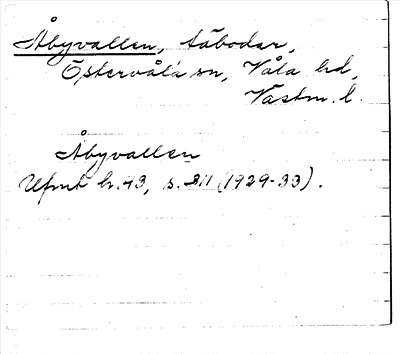 Åbyvallen, säbodar,
Östervåla sn, Våla hd,
Västm. l.
Åbyvallen
Ufmt h. 43, s. 311 (1929-33).